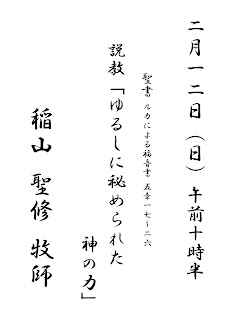 二月一二日（日）午前十時半
聖書 ルカによる福音書 五章一七～二六
説教「ゆるしに秘められた
神の力」
稲山 聖修 牧師